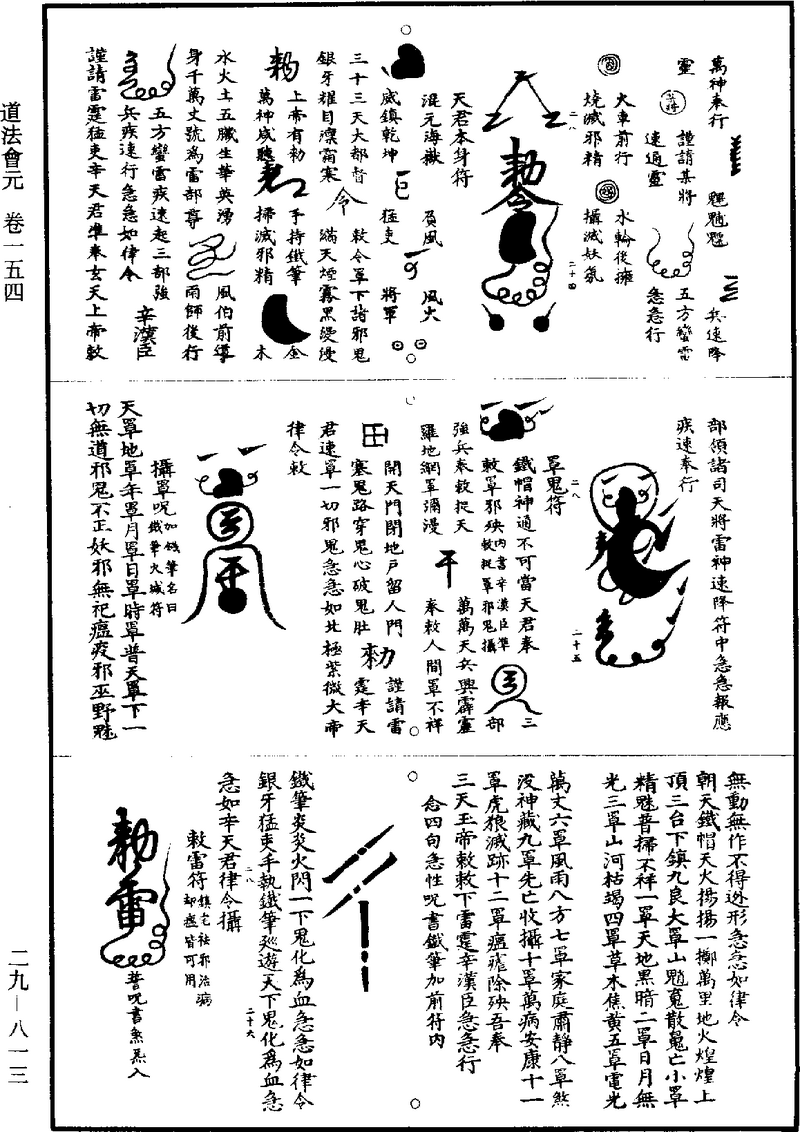 道法會元 卷一五四
二九—八一三
萬神奉行
兵速降
靈
謹請某將
速通靈
五方蠻雷
急急行
火車前行
燒滅邪精
水輪後擁
攝滅妖氛
二八
二十四
天君本身符
混元海嶽
負風
風火
威鎮乾坤
猛吏
將軍
三十三天大都督
敕令罩下諸邪鬼
銀牙耀目凜霜寒
滿天煙霧黑漫漫
上帝有勑
手持鐵筆
金
萬神咸聽
掃滅邪精
木
水火土五臟生華英湧
風伯前導
身千萬丈號為雷部尊
雨師後行
五方蠻雷疾速起三部強
兵疾速行急急如律令
辛漢臣
謹請雷霆猛吏辛天君準奉玄天上帝敕
部領諸司天將雷神速降符中急急報應
疾速奉行
二八
二十五
罩鬼符
鐵帽神通不可當天君奉
三
敕罩邪殃
內書辛漢臣準
敕捉罩邪鬼攝
部
強兵奉敕捉天
萬萬天兵興霹靂
羅地網罩彌漫
奉敕人間罩不祥
開天門閉地戶留人門
謹請雷
塞鬼路穿鬼心破鬼肚
霆辛天
君速罩一切邪鬼急急如北極紫微大帝
律令敕
攝罩呪
加鐵筆名曰
鐵筆火城符
天罩地罩年罩月罩日罩時罩普天罩下一
切無道邪鬼不正妖邪無祀瘟疫邪巫野魅
無動無作不得逃形急急如律令
朝天鐵帽天火揚揚一擲萬里地火煌煌上
頂三台下鎮九良大罩山魈鬼散鬼亡小罩
精魅普掃不祥一罩天地黑暗二罩日月無
光三罩山河枯竭四罩草木焦黃五罩電光
萬丈六罩風雨八方七罩家庭肅靜八罩煞
沒神藏九罩先亡收攝十罩萬病安康十一
罩虎狼滅跡十二罩瘟𤺊除殃吾奉
三天玉帝敕敕下雷霆辛漢臣急急行
念四句急性呪書鐵筆加前符內
鐵筆炎炎火閃一下鬼化為血急急如律令
銀牙猛吏手執鐵筆巡遊天下鬼化為血急
急如辛天君律令攝
二八
二十六
敕雷符
鎮宅祛邪治病
却瘟皆可用
勅雷